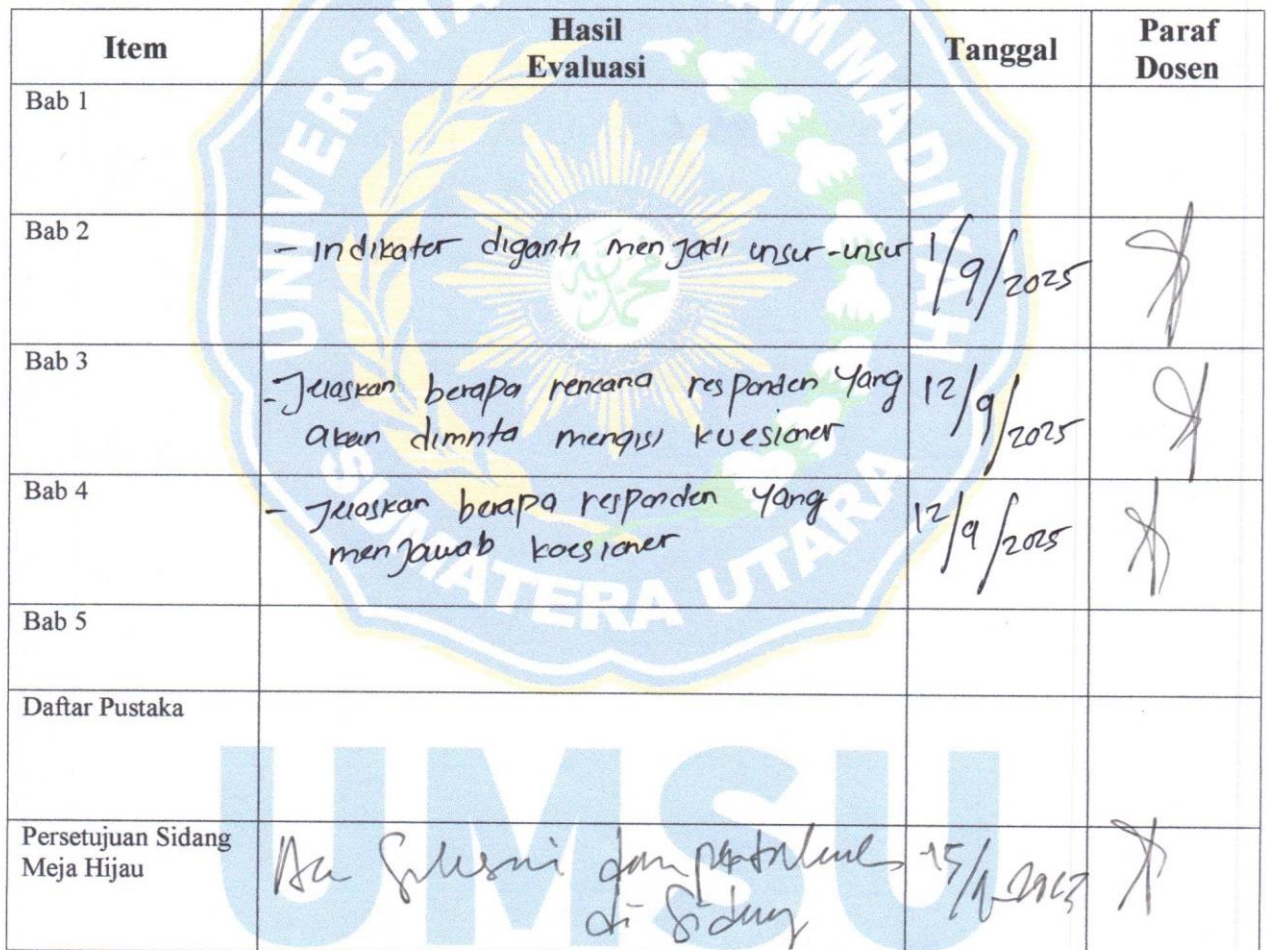 Item
Hasil
Evaluasi
Tanggal
Paraf
Dosen
Bab 1
Bab 2
- indikator diganti menjadi unsur-unsur
1/9/2025
Bab 3
- Jelaskan berapa rencana responden yang
akan diminta mengisi kuesioner
12/9/2025
Bab 4
- Jelaskan berapa responden yang
menjawab koesioner
12/9/2025
Bab 5
Daftar Pustaka
Persetujuan Sidang
Meja Hijau
di Sidang
UNIVERSITAS MUHAMMADIYAH
SUMATERA UTARA
UMSU